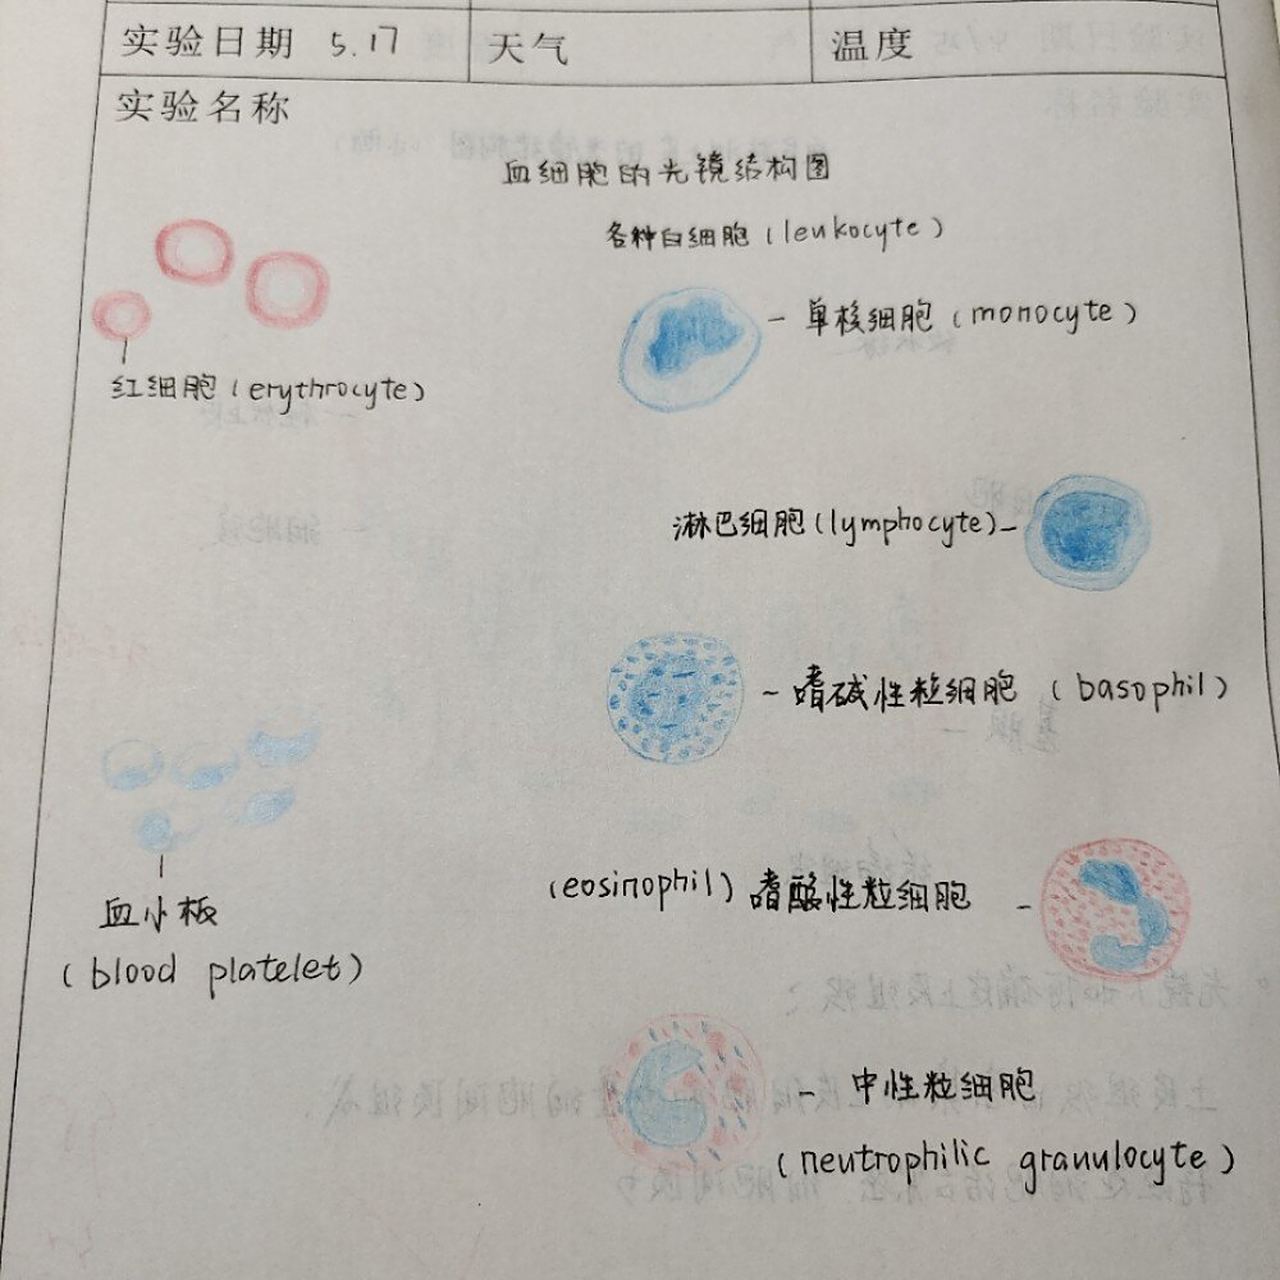 实验日期 5.17 天气 温度
实验名称
血细胞的光镜结构图
各种白细胞(leukocyte)
- 单核细胞(monocyte)
红细胞(erythrocyte)
淋巴细胞(lymphocyte)-
- 嗜碱性粒细胞(basophil)
(eosinophil)嗜酸性粒细胞 -
血小板
(blood platelet)
- 中性粒细胞
(neutrophilic granulocyte)